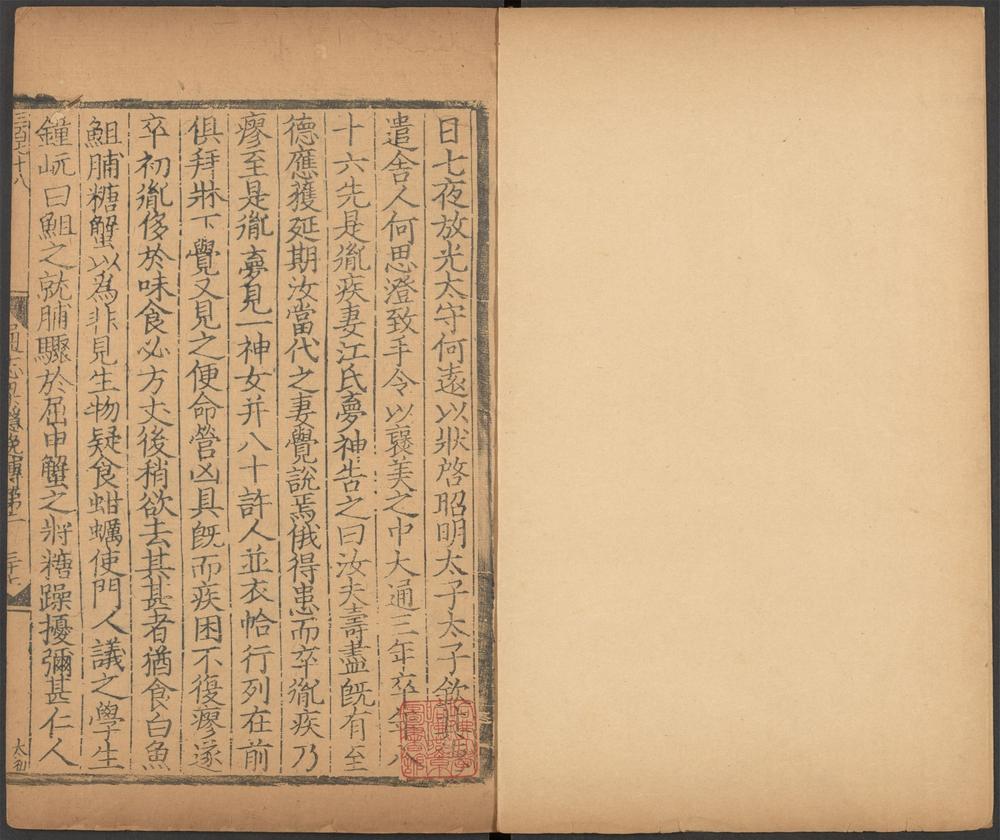 日七夜放光太守何遠以狀啓昭明太子太子欽其德
遣舍人何思澄致手令以襃美之中大通三年卒年八
十六先是胤疾妻江氏夢神告之曰汝夫壽盡旣有至
德應獲延期汝當代之妻覺說焉俄得患而卒胤疾乃
瘳至是胤夢見一神女并八十許人並衣帢行列在前
俱拜牀下覺又見之便命營凶具旣而疾困不復瘳遂
卒初胤侈於味食必方丈後稍欲去其甚者猶食白魚
䱉脯糖蟹以為非見生物疑食蚶蠣使門人議之學生
鐘岏曰䱉之就脯驟於屈申蟹之將糖躁擾彌甚仁人
三百七十八
隱逸傳第一
太初